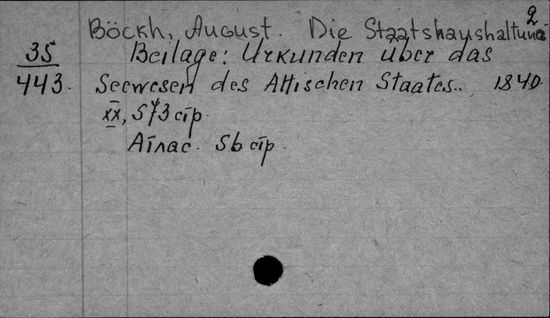 2
Böckh, August. Die Staatshaushaltung
35 Beilage: Urkunden über das
443. Seewesen des Attischen Staates.. 1840.
XX, 573 стр.
Атлас. 56 стр.